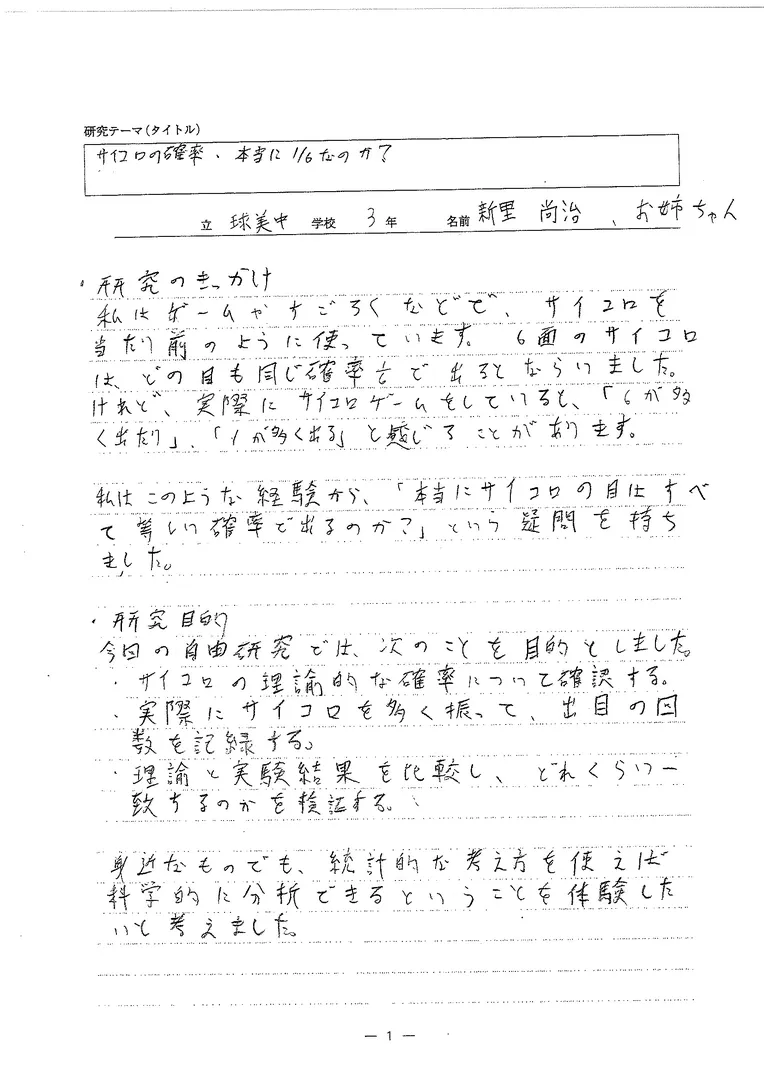 研究テーマ(タイトル)
サイコロの確率、本当に1/6なのか?
立 球美中 学校 3年 名前 新里 尚治、お姉ちゃん
・研究のきっかけ
私はゲームやすごろくなどで、サイコロを
当たり前のように使っています。6面のサイコロ
は、どの目も同じ確率で出るとならいました。
けれど、実際にサイコロゲームをしていると、「6が多
く出たり」、「1が多く出る」と感じることがあります。
私はこのような経験から、「本当にサイコロの目はすべ
て等しい確率で出るのか?」という疑問を持ち
ました。
・研究目的
今回の自由研究では、次のことを目的としました。
・サイコロの理論的な確率について確認する。
・実際にサイコロを多く振って、出目の回
数を記録する。
・理論と実験結果を比較し、どれくらい一
致するのかを検証する。
身近なものでも、統計的な考え方を使えば
科学的に分析できるということを体験した
いと考えました。
— 1 —